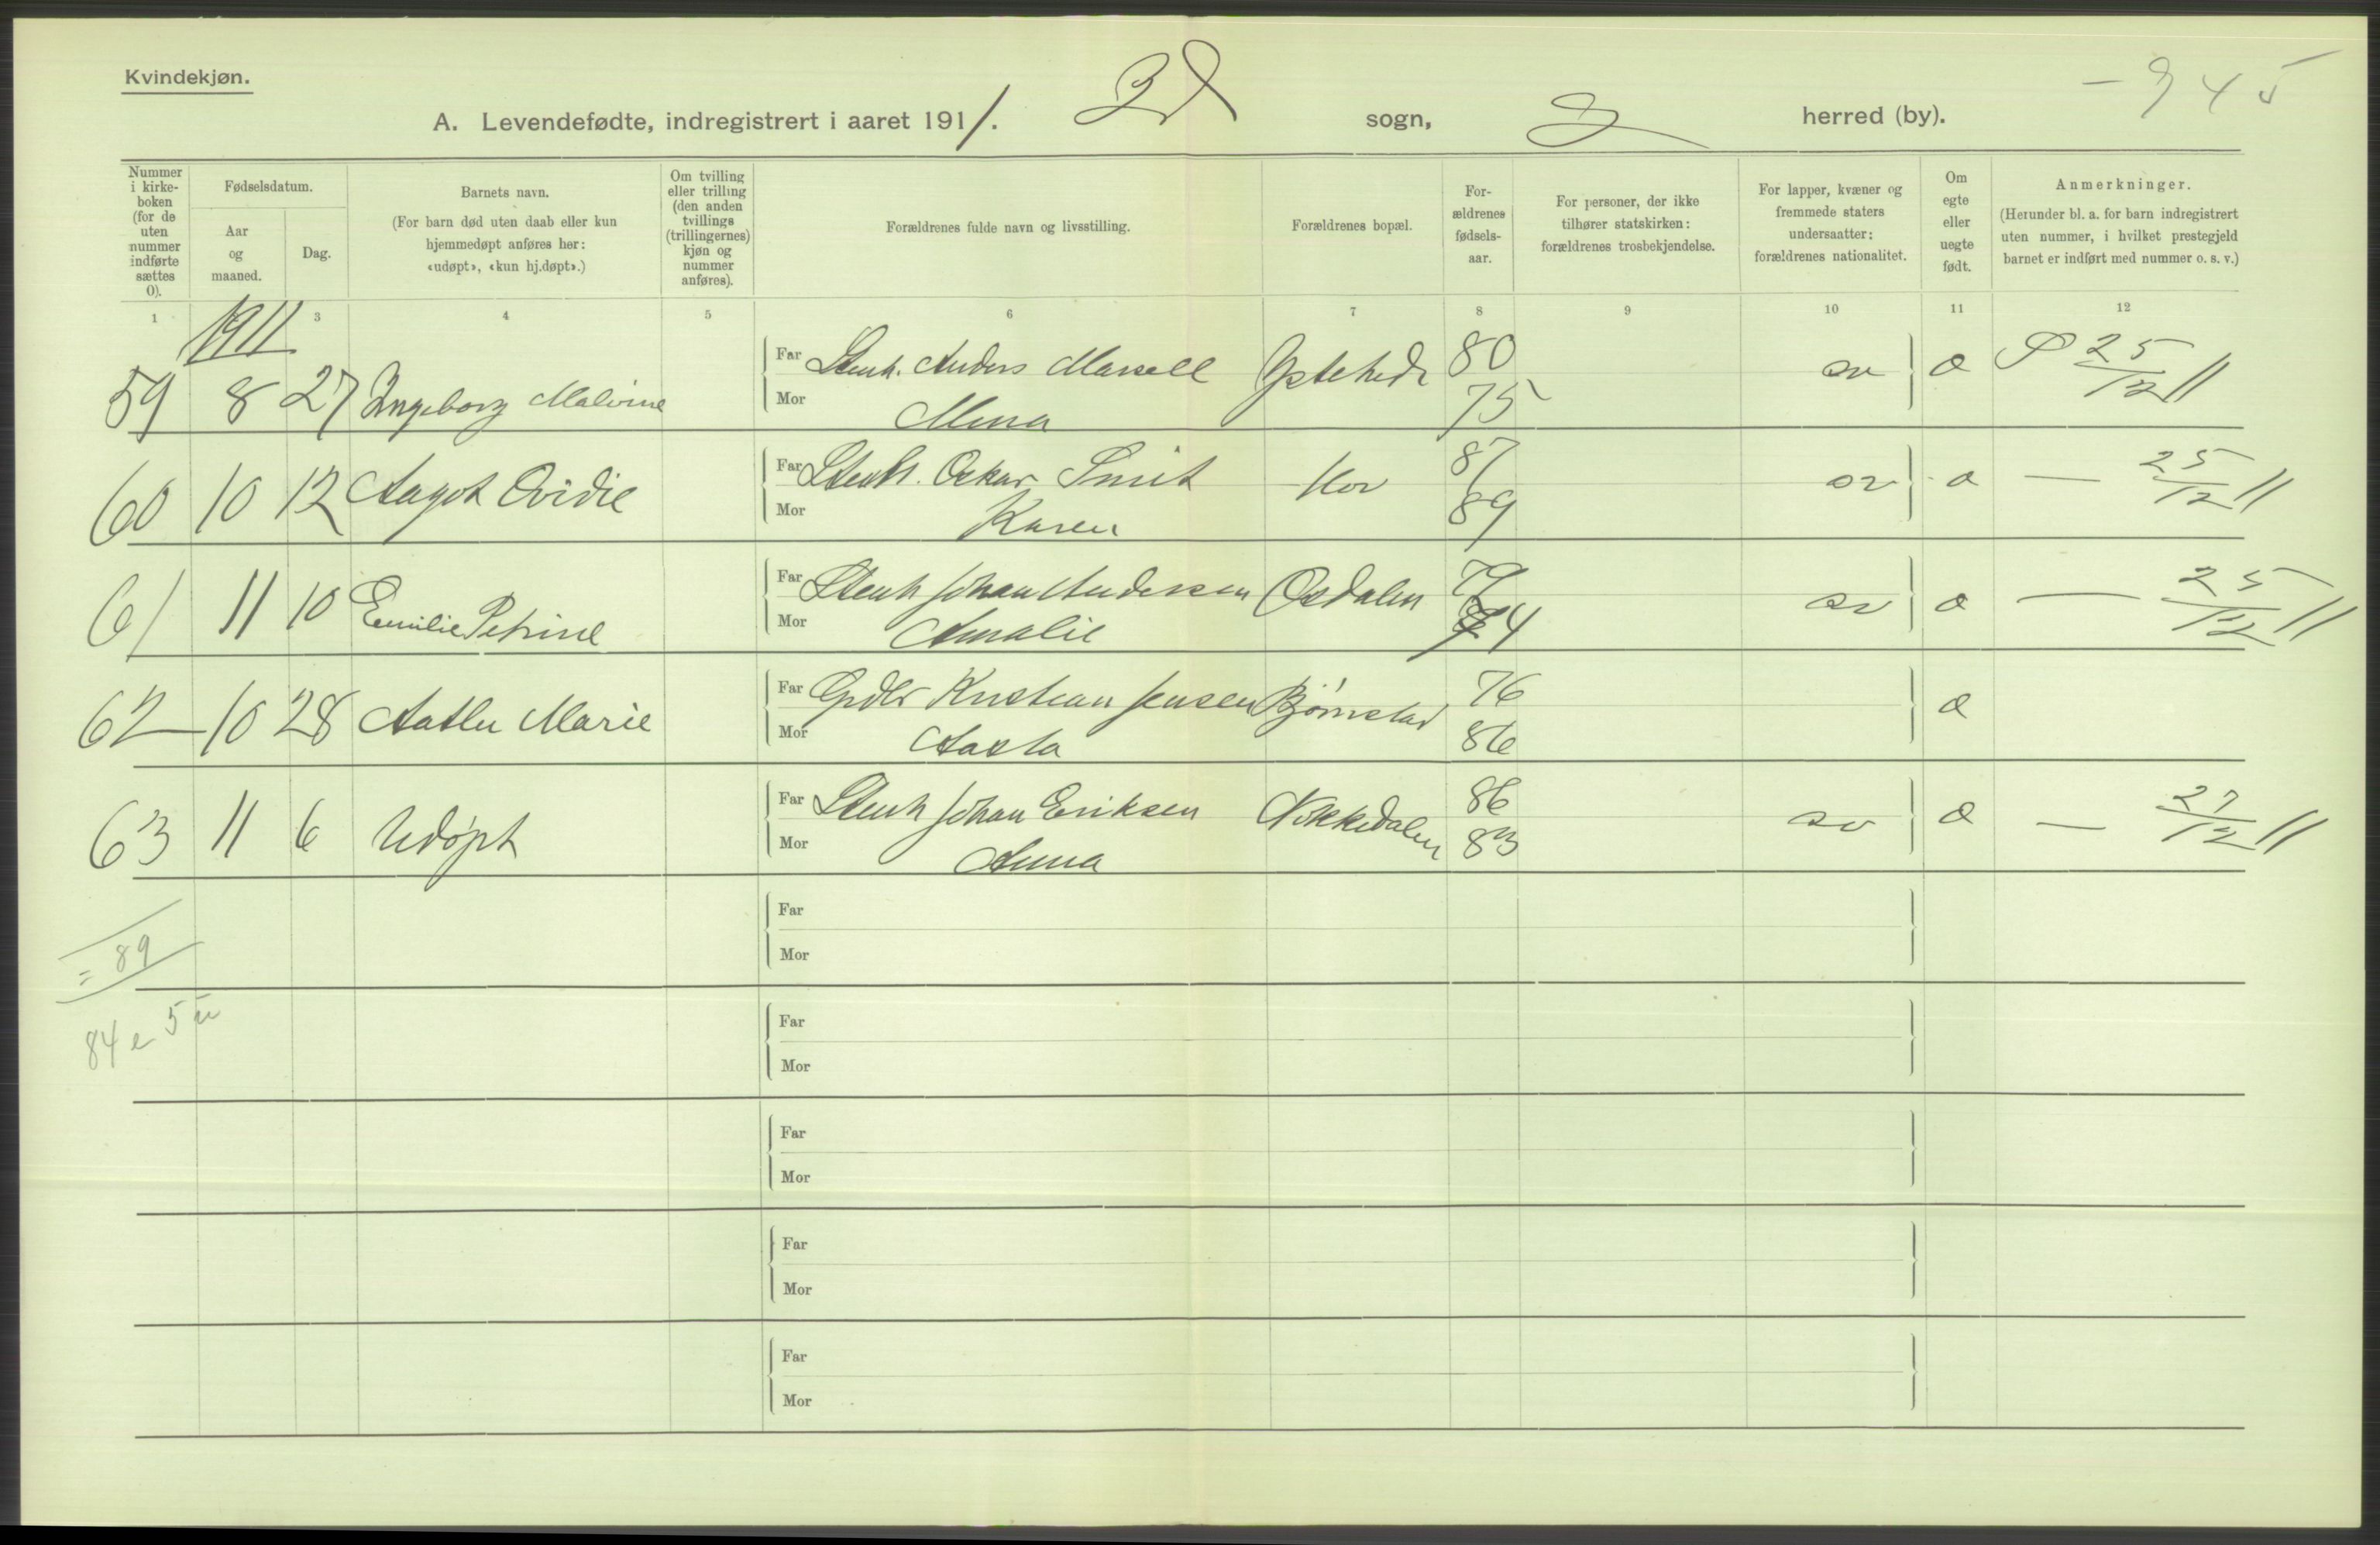 Kvindekjøn.
- 345
A. Levendefødte, indregistrert i aaret 1911. Id sogn, Id herred (by).
Nummer i kirke-boken (for de uten nummer indførte sættes 0).
Fødselsdatum.
Aar og maaned.
Dag.
Barnets navn.
(For barn død uten daab eller kun hjemmedøpt anføres her: «udøpt», «kun hj.døpt».)
Om tvilling eller trilling (den anden tvillings (trillingernes) kjøn og nummer anføres).
Forældrenes fulde navn og livsstilling.
Forældrenes bopæl.
For-ældrenes fødsels-aar.
For personer, der ikke tilhører statskirken: forældrenes trosbekjendelse.
For lapper, kvæner og fremmede staters undersaatter: forældrenes nationalitet.
Om egte eller uegte født.
Anmerkninger.
(Herunder bl. a. for barn indregistrert uten nummer, i hvilket prestegjeld barnet er indført med nummer o. s. v.)
1 3 4 5 6 7 8 9 10 11 12
1911
59 8 27 Ingeborg Malvine Far Stenh. Anders Marsell 80 sv æ P 25/12 11
Mor Mina 75
60 10 12 Aagot Ovidie Far Stenh. Oskar Smit Kor 87 sv æ — 25/12 11
Mor Karen 89
61 11 10 Emilie Petrine Far Stenh Johan Andersen Osdalen 79 sv æ — 25/12 11
Mor Amalie 4
62 10 28 Aaslu Marie Far Grdbr Kristian Jensen Bjørnstad 76 æ
Mor Aasta 86
63 11 6 Udøpt Far Stenh Johan Eriksen Nokkedalen 86 sv æ — 27/12 11
Mor Anna 83
Far
Mor
= 89
Far
84 e 5 u
Mor
Far
Mor
Far
Mor
Far
Mor